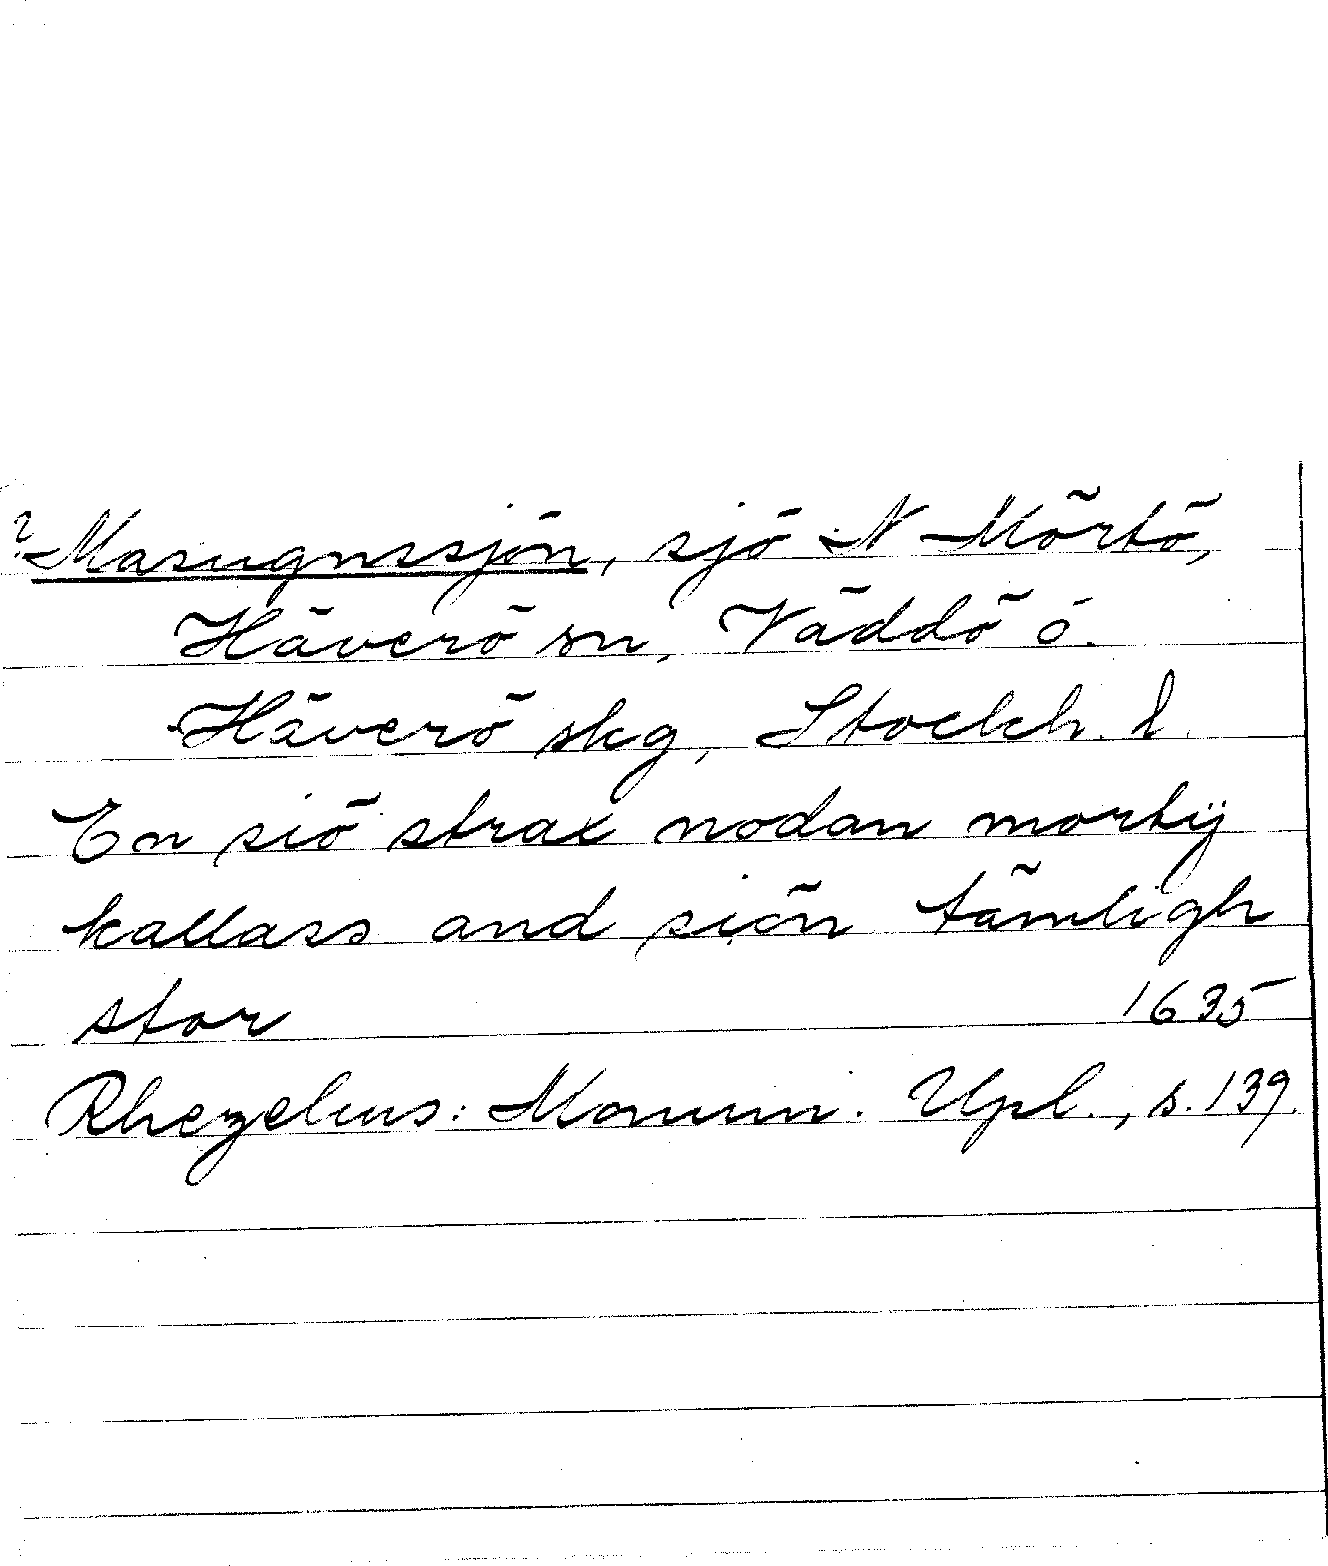 ? Masugnssjön, sjö N Mörtö,
Häverö sn, Väddö ö.
Häverö skg, Stockh. l.
En siö strax nodan mortÿ
kallass and siön tämligh
stor 1635
Rhezelius: Monum. Upl., s. 139.